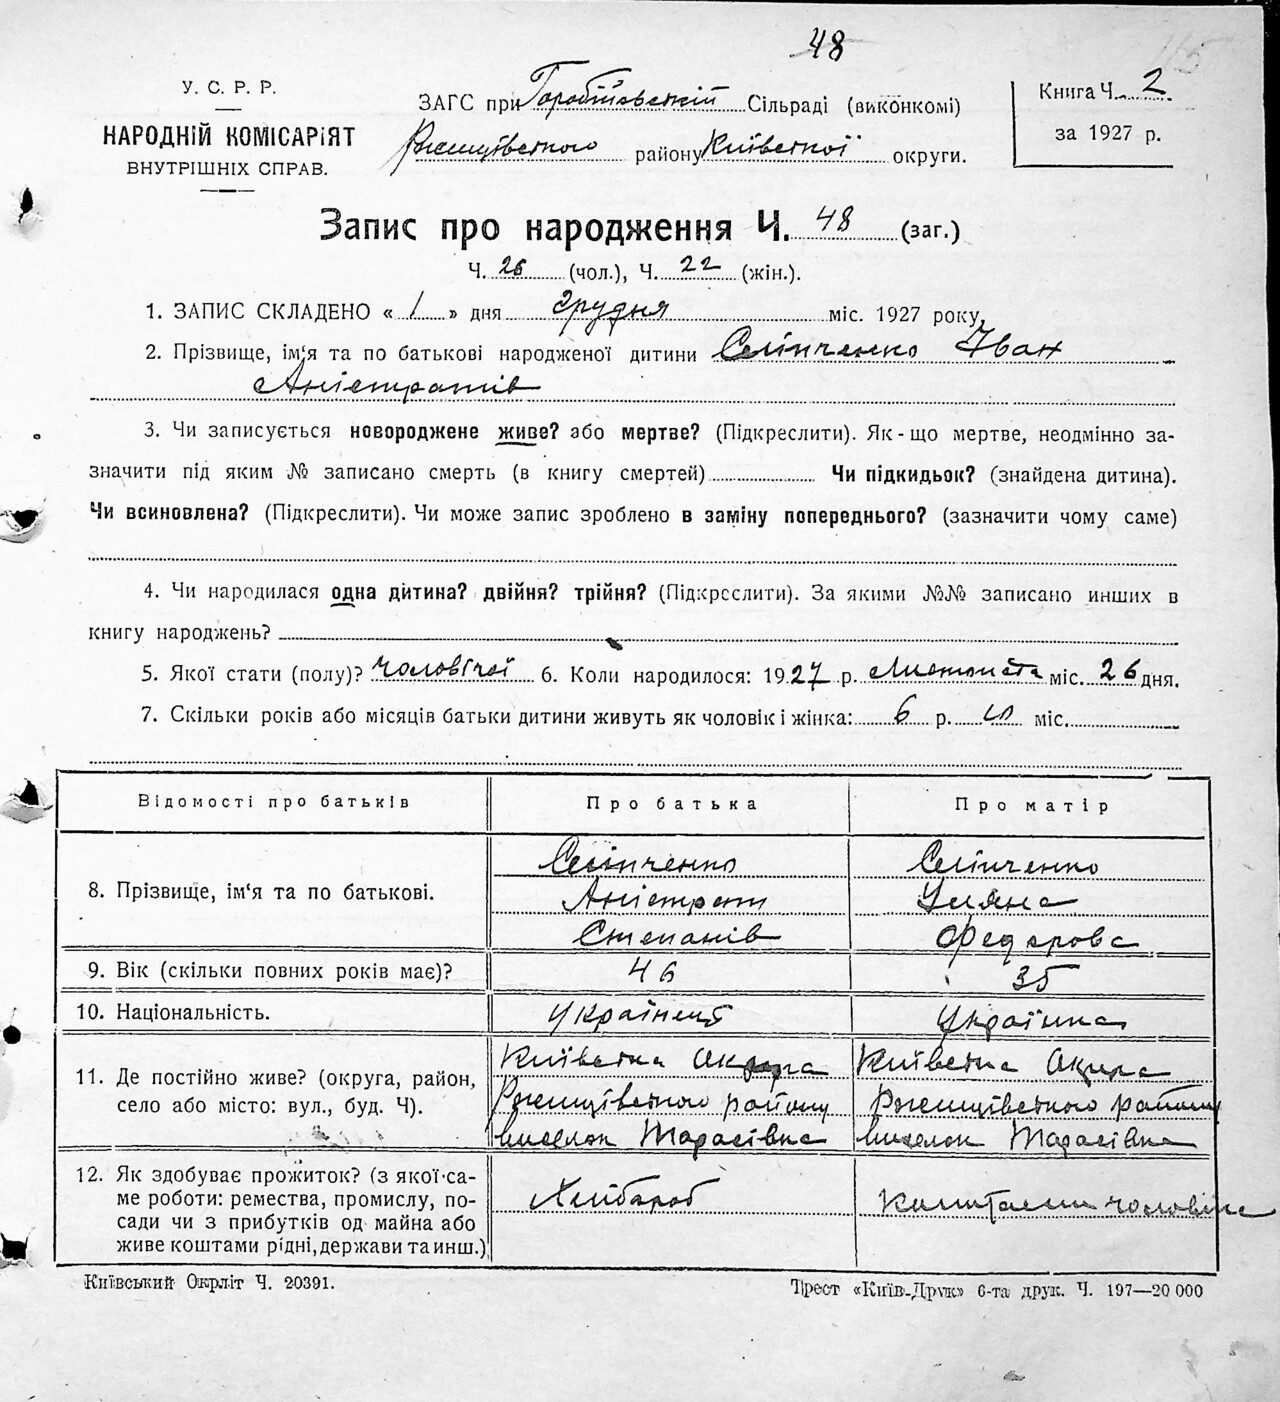 48
У. С. Р. Р.
НАРОДНІЙ КОМІСАРІЯТ
ВНУТРІШНІХ СПРАВ.
ЗАГС при Сільраді (виконкомі)
району Київської округи.
Книга Ч. 2
за 1927 р.
Запис про народження Ч. 48 (заг.)
Ч. 26 (чол.), Ч. 22 (жін.).
1. ЗАПИС СКЛАДЕНО « 1 » дня Грудня міс. 1927 року.
2. Прізвище, ім'я та по батькові народженої дитини Селіпченко Іван
Аністратів
3. Чи записується новороджене живе? або мертве? (Підкреслити). Як-що мертве, неодмінно за-
значити під яким № записано смерть (в книгу смертей) Чи підкидьок? (знайдена дитина).
Чи всиновлена? (Підкреслити). Чи може запис зроблено в заміну попереднього? (зазначити чому саме)
4. Чи народилася одна дитина? двійня? трійня? (Підкреслити). За якими №№ записано инших в
книгу народжень?
5. Якої стати (полу)? Чоловічої 6. Коли народилося: 1927 р. Листопада міс. 26 дня.
7. Скільки років або місяців батьки дитини живуть як чоловік і жінка: 6 р. міс.
Відомості про батьків Про батька Про матір
8. Прізвище, ім'я та по батькові.
Селіпченко Селіпченко
Аністрат Уляна
Степанів Федорова
9. Вік (скільки повних років має)? 46 35
10. Національність. Українець Українка
11. Де постійно живе? (округа, район,
село або місто: вул., буд. Ч).
Київська Округа Київська Округа
району району
виселок Тарасівка виселок Тарасівка
12. Як здобуває прожиток? (з якої-са-
ме роботи: ремества, промислу, по-
сади чи з прибутків од майна або
живе коштами рідні, держави та инш.)
Хлібороб чоловіка
Київський Окрліт Ч. 20391.
Трест «Київ-Друк» 6-та друк. Ч. 197—20 000